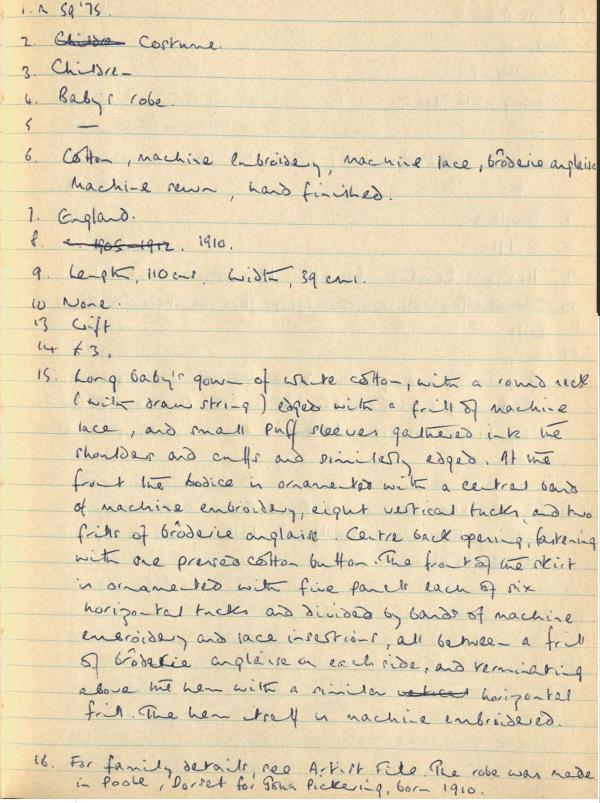 1. n 59'75.
2. Children Costume.
3. Children
4. Baby's robe.
5 —
6. Cotton, machine embroidery, machine lace, brôderie anglaise
Machine sewn, hand finished.
7. England.
8. c. 1905-1912. 1910.
9. Length, 110 cms. Width, 39 cms.
10 None.
13 Gift
14 £3.
15. Long baby's gown of white cotton, with a round neck
(with draw string) edged with a frill of machine
lace, and small puff sleeves gathered into the
shoulders and cuffs and similarly edged. At the
front the bodice is ornamented with a central band
of machine embroidery, eight vertical tucks, and two
frills of brôderie anglaise. Centre back opening, fastening
with one pressed cotton button. The front of the skirt
is ornamented with five panels each of six
horizontal tucks and divided by bands of machine
embroidery and lace insertions, all between a frill
of brôderie anglaise on each side, and terminating
above the hem with a similar vertical horizontal
frill. The hem itself is machine embroidered.
16. For family details, see Artist File. The robe was made
in Poole, Dorset for Pickering, born 1910.